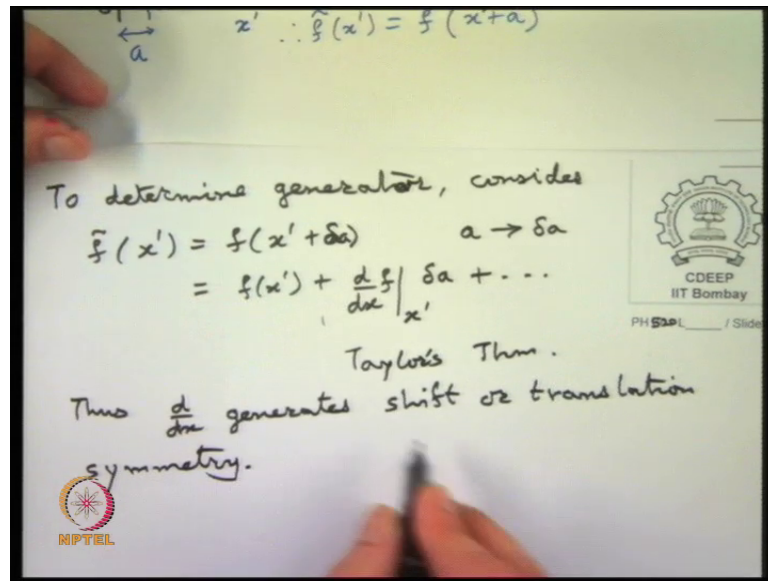 a
x' ∴ f̃(x') = f(x'+a)
To determine generator, consides
f̃(x') = f(x' + δa) a → δa
= f(x') + d/dx f|x' δa + ...
Taylor's Thm.
Thus d/dx generates shift or translation
symmetry.
CDEEP
IIT Bombay
PH 520 L____ / Slide
NPTEL